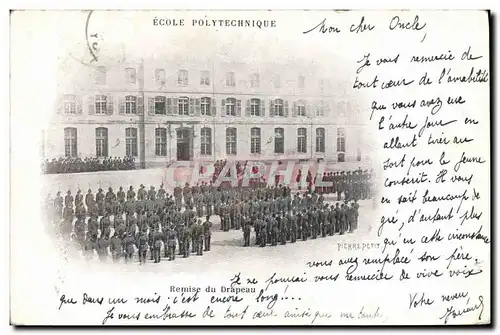 ÉCOLE POLYTECHNIQUE
Mon cher Oncle,
Je vous remercie de
tout cœur de l'amabilité
que vous avez eue
l'autre jour en
allant tirer au
sort pour le jeune
conscrit. Il vous
en sait beaucoup de
gré, d'autant plus
qu'en cette circonstance
vous avez remplacé son père.
Je ne pouvai vous remercie de vive voix
que dans un mois, c'est encore
long....
Je vous embrasse de tout cœur ainsi que ma tante
Votre neveu,
CARAPHIL
PIERRE PETIT
Remise du Drapeau